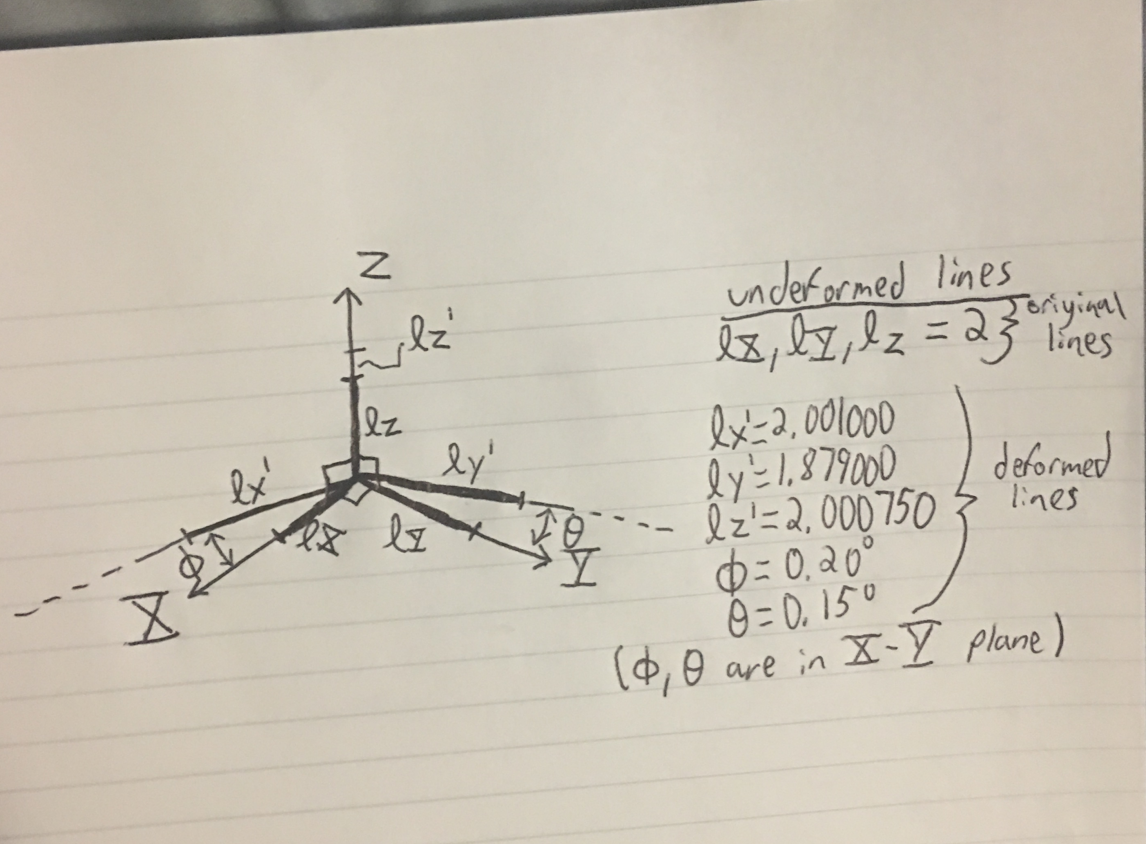 Z
lz'
lz
lx'
ly'
lX
lY
ϕ
θ
X
Y
undeformed lines
lX, lY, lz = 2 } original lines
lx' = 2.001000
ly' = 1.879000
lz' = 2.000750
ϕ = 0.20°
θ = 0.15°
} deformed lines
(ϕ, θ are in X-Y plane)